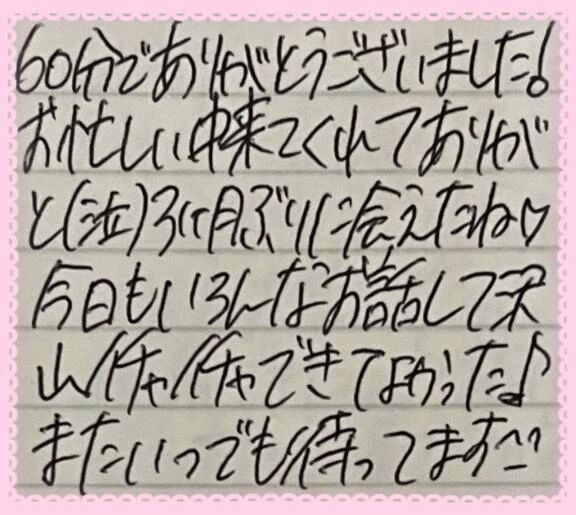 60分でありがとうございました!
お忙しい中来てくれてありが
と(泣)3ヶ月ぶりに会えたね♡
今日もいろんなお話して沢
山イチャイチャできてよかった♪
またいつでも待ってます^^